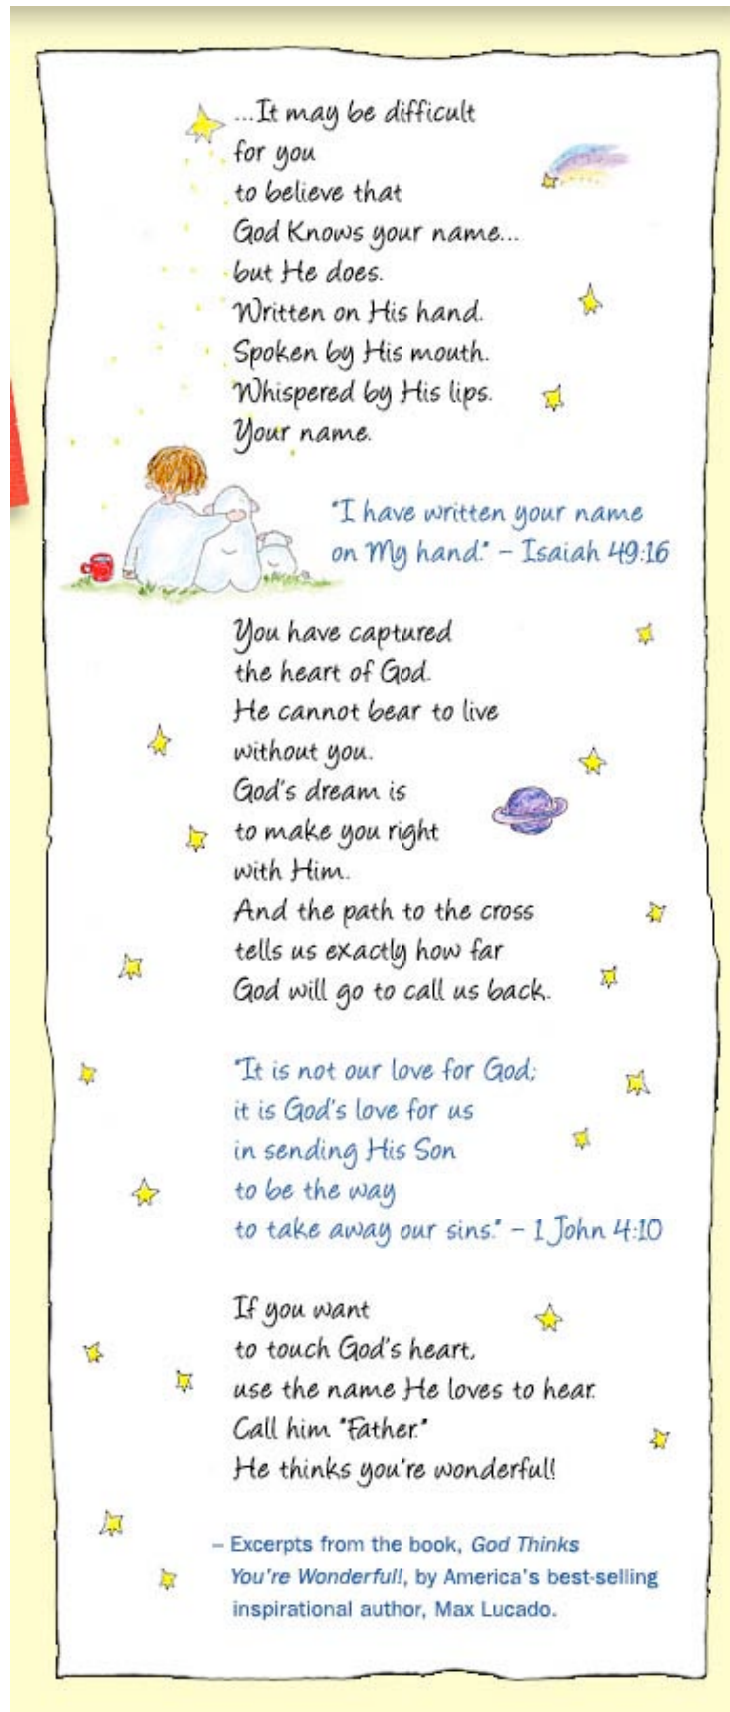 ...It may be difficult
for you
to believe that
God Knows your name...
but He does.
Written on His hand.
Spoken by His mouth.
Whispered by His lips.
Your name.
"I have written your name
on My hand." – Isaiah 49:16
You have captured
the heart of God.
He cannot bear to live
without you.
God's dream is
to make you right
with Him.
And the path to the cross
tells us exactly how far
God will go to call us back.
"It is not our love for God;
it is God's love for us
in sending His Son
to be the way
to take away our sins." – 1 John 4:10
If you want
to touch God's heart,
use the name He loves to hear.
Call him "Father."
He thinks you're wonderful!
– Excerpts from the book, God Thinks
You're Wonderful!, by America's best-selling
inspirational author, Max Lucado.